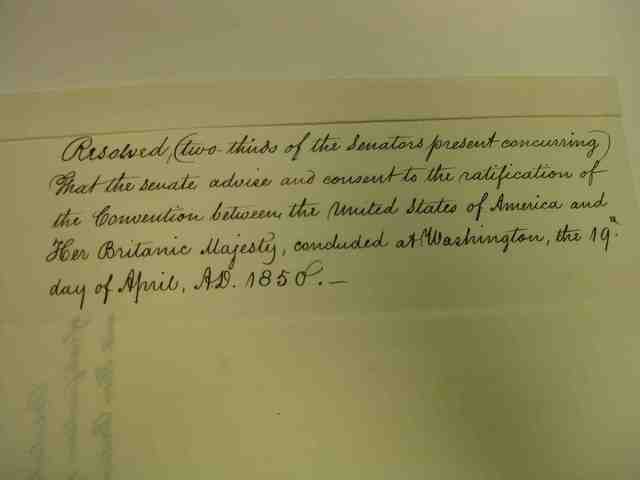 Resolved, (two-thirds of the Senators present concurring)
That the Senate advise and consent to the ratification of
the Convention between the United States of America and
Her Britanic Majesty, concluded at Washington, the 19th
day of April, A.D. 1850. —